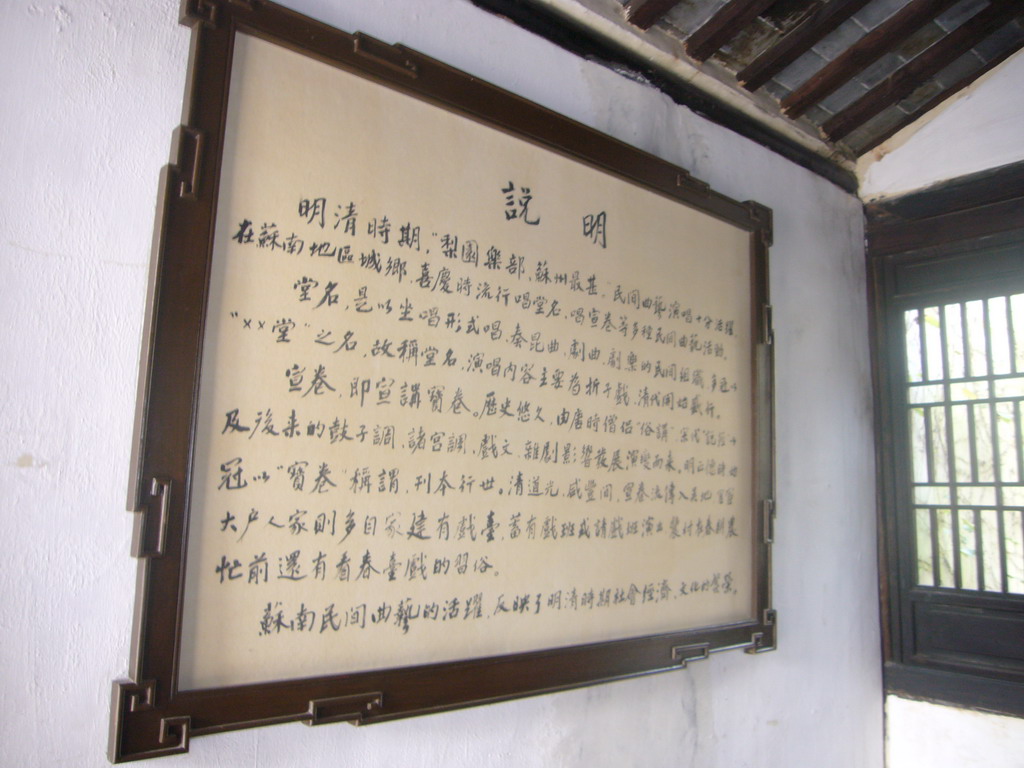 説 明
明清時期,“梨園樂部,蘇州最甚。”民间曲藝演唱十分活躍,
在蘇南地區城鄉,喜慶時流行唱堂名,唱宣卷等多種民间曲藝活動。
堂名,是以坐唱形式唱、奏昆曲、劇曲、劇樂的民间組織,多冠以
“××堂”之名,故稱堂名,演唱内容主要為折子戲,清代開始盛行。
宣卷,即宣講寶卷。歷史悠久,由唐時僧侣“俗講”
及後来的鼓子調、諸宫調、戲文、雜劇影響發展演變而来。明正德時始
冠以“寶卷”稱謂,刊本行世。清道光、咸豐间,宣卷流傳入
大户人家則多自家建有戲臺,蓄有戲班或請戲班演出,農村有春耕農
忙前還有看春臺戲的習俗。
蘇南民间曲藝的活躍,反映了明清時期社會經濟、文化的繁榮。